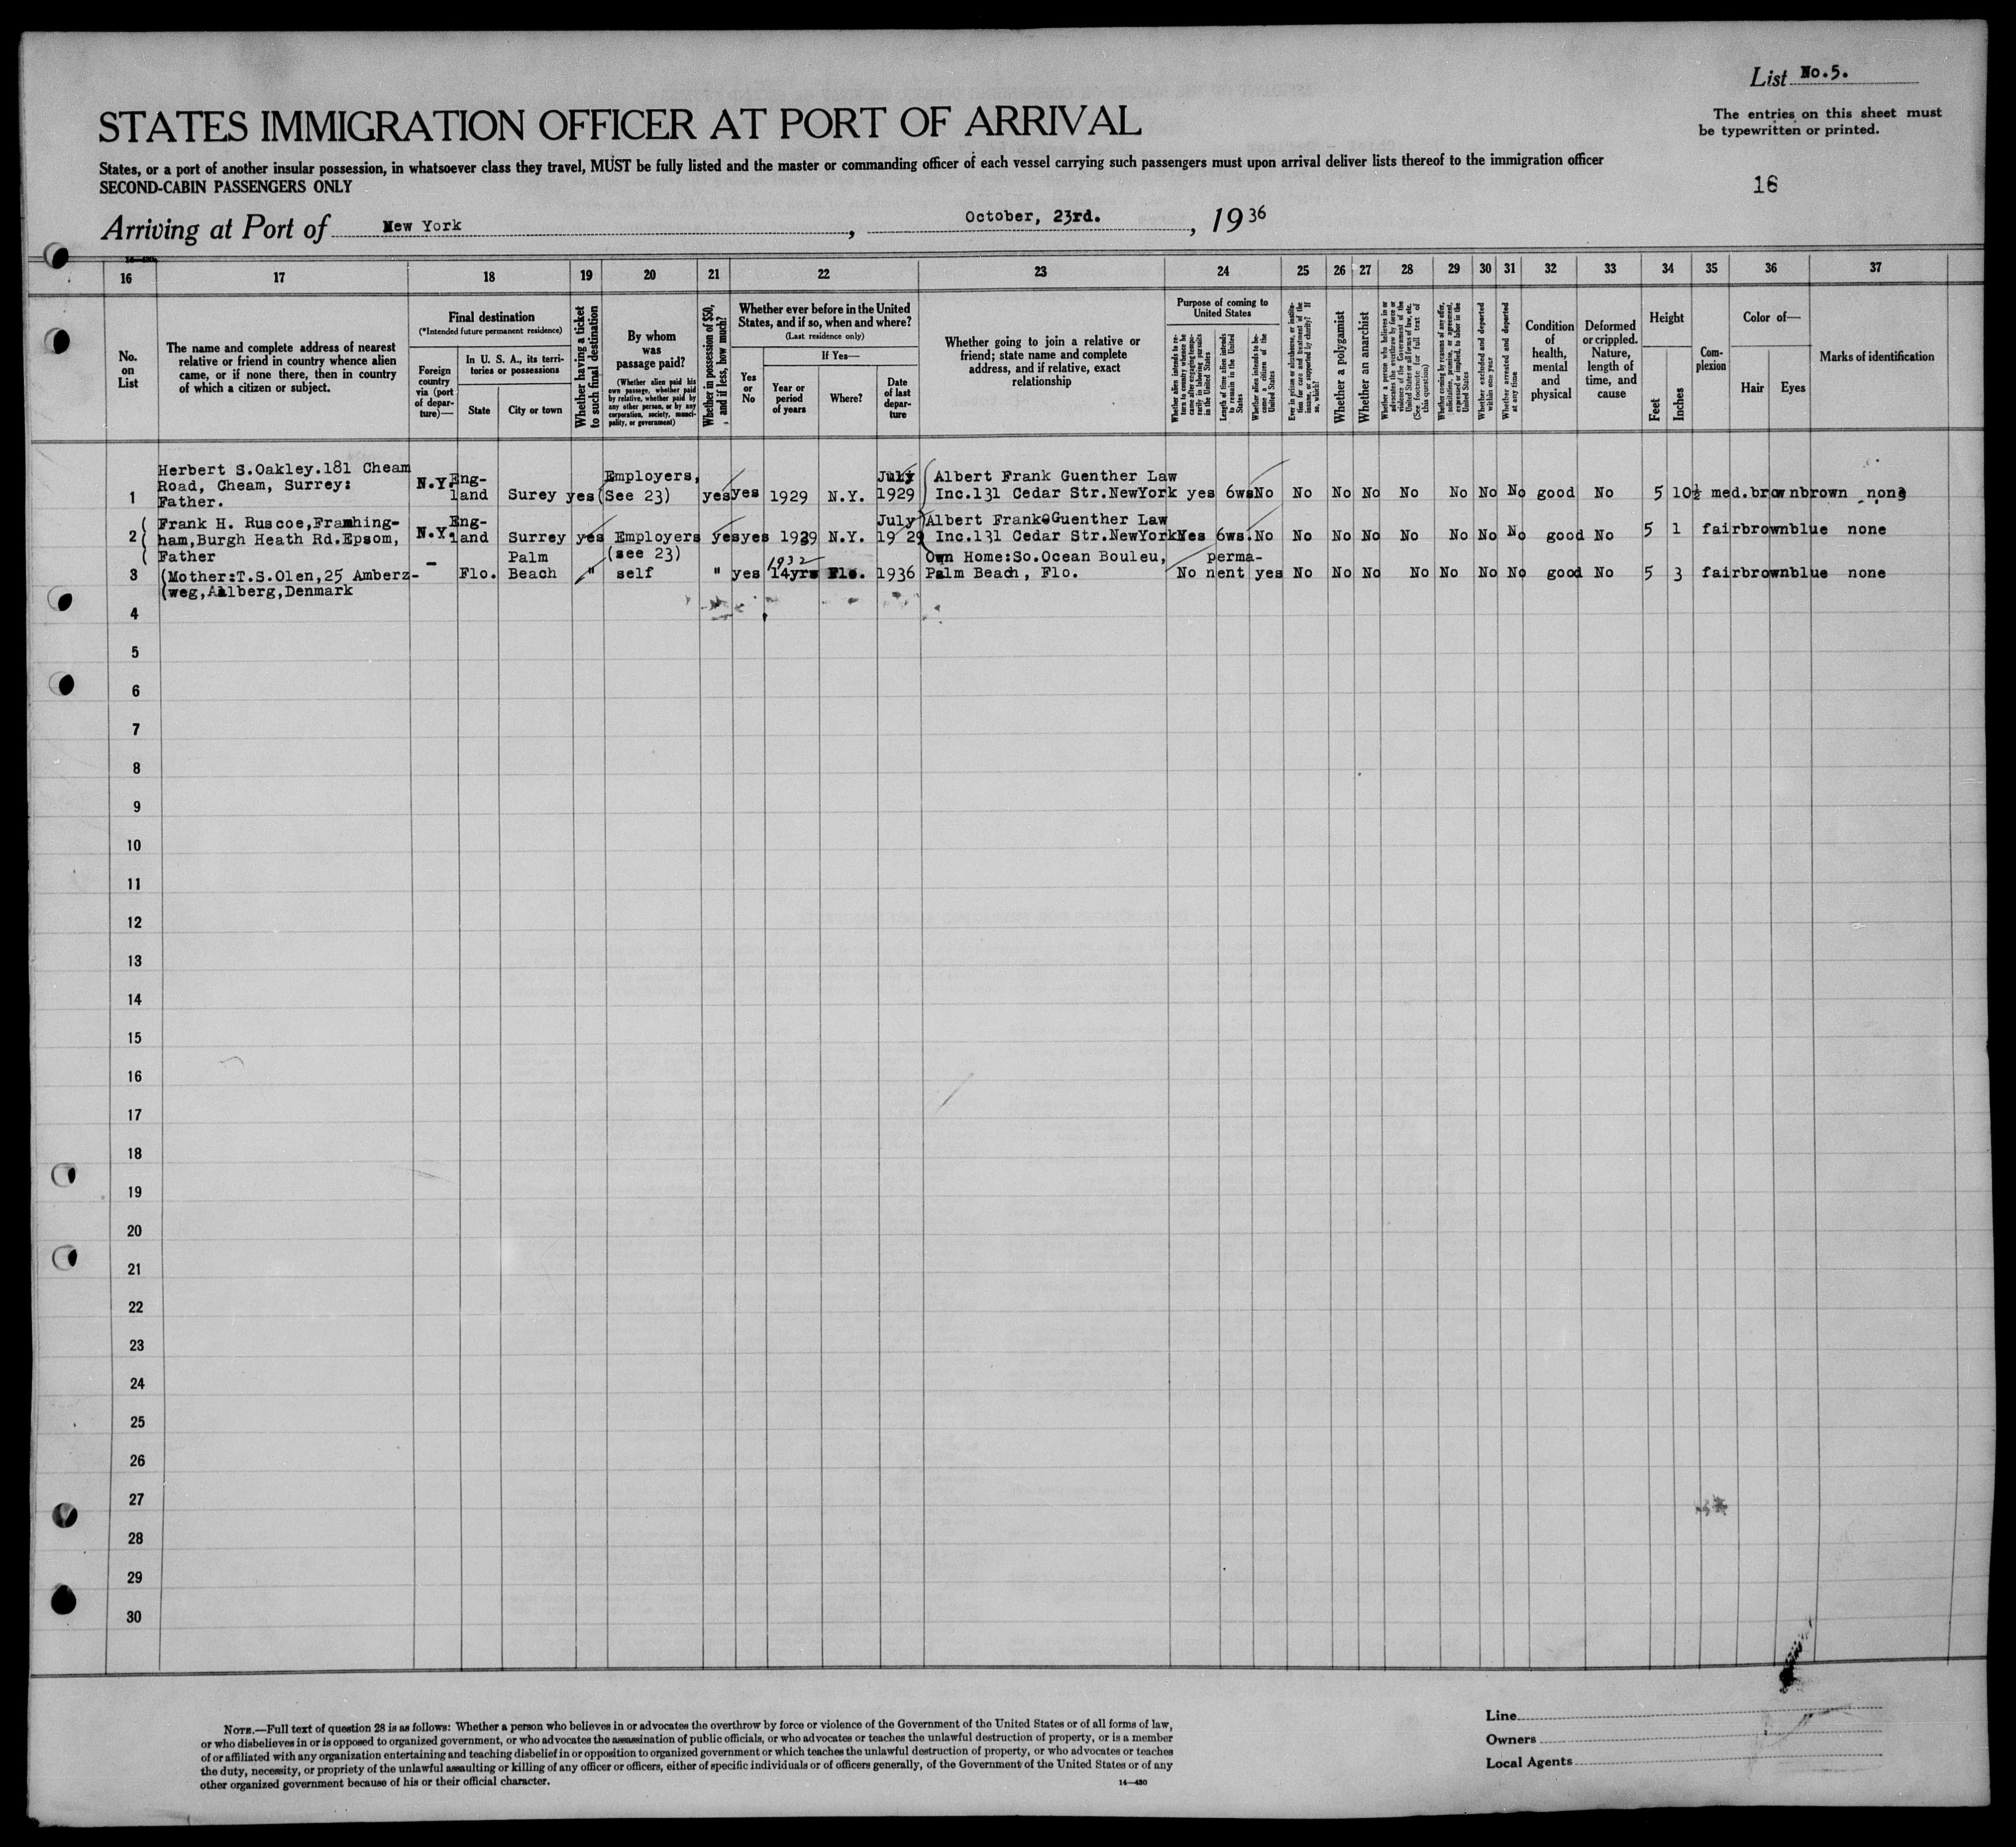 List No.5.
The entries on this sheet must
be typewritten or printed.
STATES IMMIGRATION OFFICER AT PORT OF ARRIVAL
States, or a port of another insular possession, in whatsoever class they travel, MUST be fully listed and the master or commanding officer of each vessel carrying such passengers must upon arrival deliver lists thereof to the immigration officer
SECOND-CABIN PASSENGERS ONLY
16
Arriving at Port of New York, October, 23rd., 1936
16 17 18 19 20 21 22 23 24 25 26 27 28 29 30 31 32 33 34 35 36 37
No.
on
List
The name and complete address of nearest
relative or friend in country whence alien
came, or if none there, then in country
of which a citizen or subject.
Final destination
(*Intended future permanent residence)
Foreign
country
via (port
of depar-
ture)—
In U. S. A., its terri-
tories or possessions
State
City or town
Whether having a ticket
to such final destination
By whom
was
passage paid?
(Whether alien paid his
own passage, whether paid
by relative, whether paid by
any other person, or by any
corporation, society, munici-
pality, or government)
Whether in possession of $50,
and if less, how much?
Whether ever before in the United
States, and if so, when and where?
(Last residence only)
Yes
or
No
If Yes—
Year or
period
of years
Where?
Date
of last
depar-
ture
Whether going to join a relative or
friend; state name and complete
address, and if relative, exact
relationship
Purpose of coming to
United States
Whether alien intends to re-
turn to country whence he
came after engaging tempo-
rarily in laboring pursuits
in the United States
Length of time alien intends
to remain in the United
States
Whether alien intends to be-
come a citizen of the
United States
Ever in prison or almshouse, or institu-
tion for care and treatment of the
insane, or supported by charity? If
so, which?
Whether a polygamist
Whether an anarchist
Whether a person who believes in or
advocates the overthrow by force or
violence of the Government of the
United States or all forms of law, etc.
(See footnote for full text of
this question)
Whether coming by reasons of any offer,
solicitation, promise, or agreement,
expressed or implied, to labor in the
United States
Whether excluded and deported
within one year
Whether arrested and deported
at any time
Condition
of
health,
mental
and
physical
Deformed
or crippled.
Nature,
length of
time, and
cause
Height
Feet
Inches
Com-
plexion
Color of—
Hair
Eyes
Marks of identification
Herbert S.Oakley.181 Cheam
Road, Cheam, Surrey:
Father.
1 N.Y. Eng-
land Surey yes Employers,
(See 23) yes yes 1929 N.Y. July
1929 Albert Frank Guenther Law
Inc.131 Cedar Str.NewYork yes 6ws No No No No No No No No good No 5 10½ med. brown brown none
Frank H. Ruscoe,Framhing-
ham,Burgh Heath Rd.Epsom,
Father
2 N.Y. Eng-
land Surrey yes Employers
(see 23) yes yes 1929 N.Y. July
1929 Albert Frank Guenther Law
Inc.131 Cedar Str.NewYork Yes 6ws. No No No No No No No No good No 5 1 fair brown blue none
3 (Mother:T.S.Olen,25 Amberz-
(weg,Aalberg,Denmark
- Flo. Palm
Beach " self " yes 1932
14yrs Flo. 1936 Own Home:So.Ocean Bouleu,
Palm Beach, Flo. No perma-
nent yes No No No No No No No good No 5 3 fair brown blue none
4
5
6
7
8
9
10
11
12
13
14
15
16
17
18
19
20
21
22
23
24
25
26
27
28
29
30
NOTE.—Full text of question 28 is as follows: Whether a person who believes in or advocates the overthrow by force or violence of the Government of the United States or of all forms of law,
or who disbelieves in or is opposed to organized government, or who advocates the assassination of public officials, or who advocates or teaches the unlawful destruction of property, or is a member
of or affiliated with any organization entertaining and teaching disbelief in or opposition to organized government or which teaches the unlawful destruction of property, or who advocates or teaches
the duty, necessity, or propriety of the unlawful assaulting or killing of any officer or officers, either of specific individuals or of officers generally, of the Government of the United States or of any
other organized government because of his or their official character.
14—430
Line
Owners
Local Agents